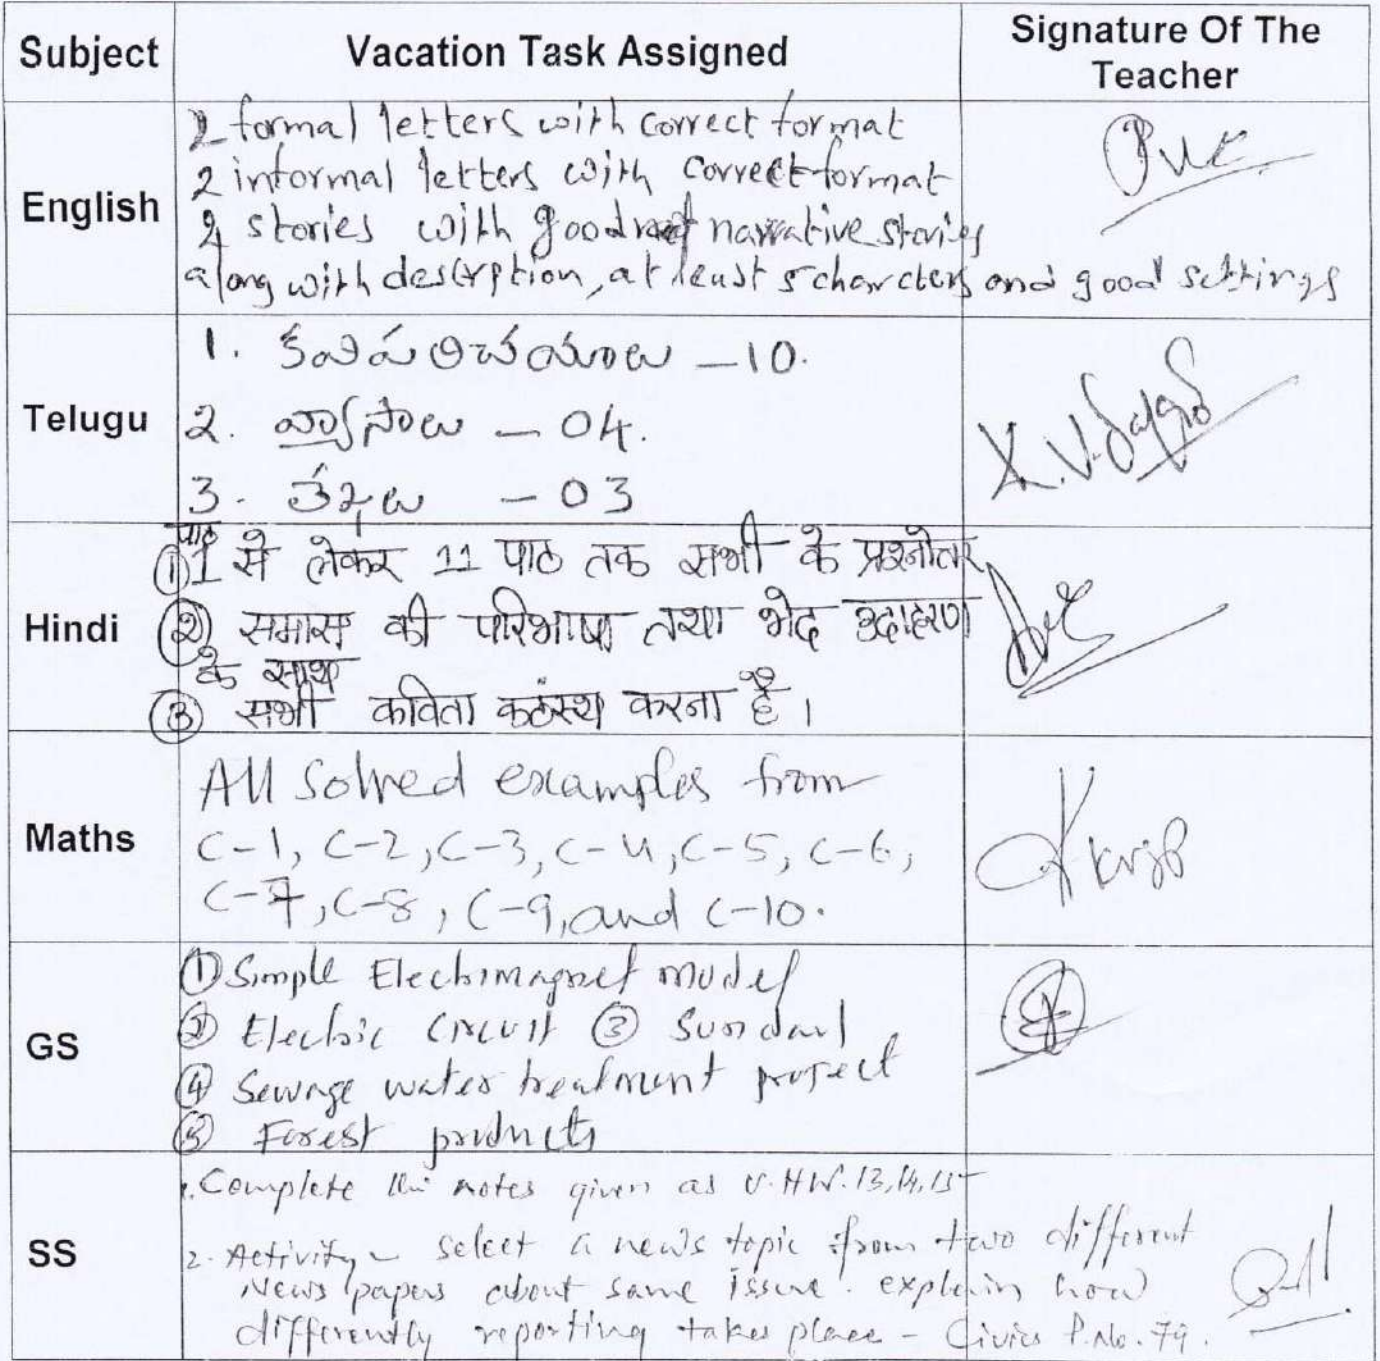 Subject Vacation Task Assigned Signature Of The Teacher
English
2 formal letters with correct format
2 informal letters with correct format
2 stories with good narrative stories
along with descrption, at least 5 charcters and good settings
Telugu
1. కవి పరిచయాలు - 10.
2. వ్యాసాలు - 04.
3. - 03
Hindi
पाठ
① 1 से लेकर 11 पाठ तक सभी के प्रश्नोतर
② समास की परिभाषा तथा भेद उदाहरण
के साथ
③ सभी कविता कठंस्थ करना है।
Maths
All Solved examples from
C-1, C-2, C-3, C-4, C-5, C-6,
C-7, C-8, C-9, and C-10.
GS
① Simple Electromagnet model
② Electric Circuit ③ Sundail
④ Sewage water treatment project
⑤ Forest products
SS
1. Complete the notes given as V.HW. 13, 14, 15
2. Activity - select a news topic from two different
News papers about same issue. explain how
differently reporting takes place - Civics P.No. 79.